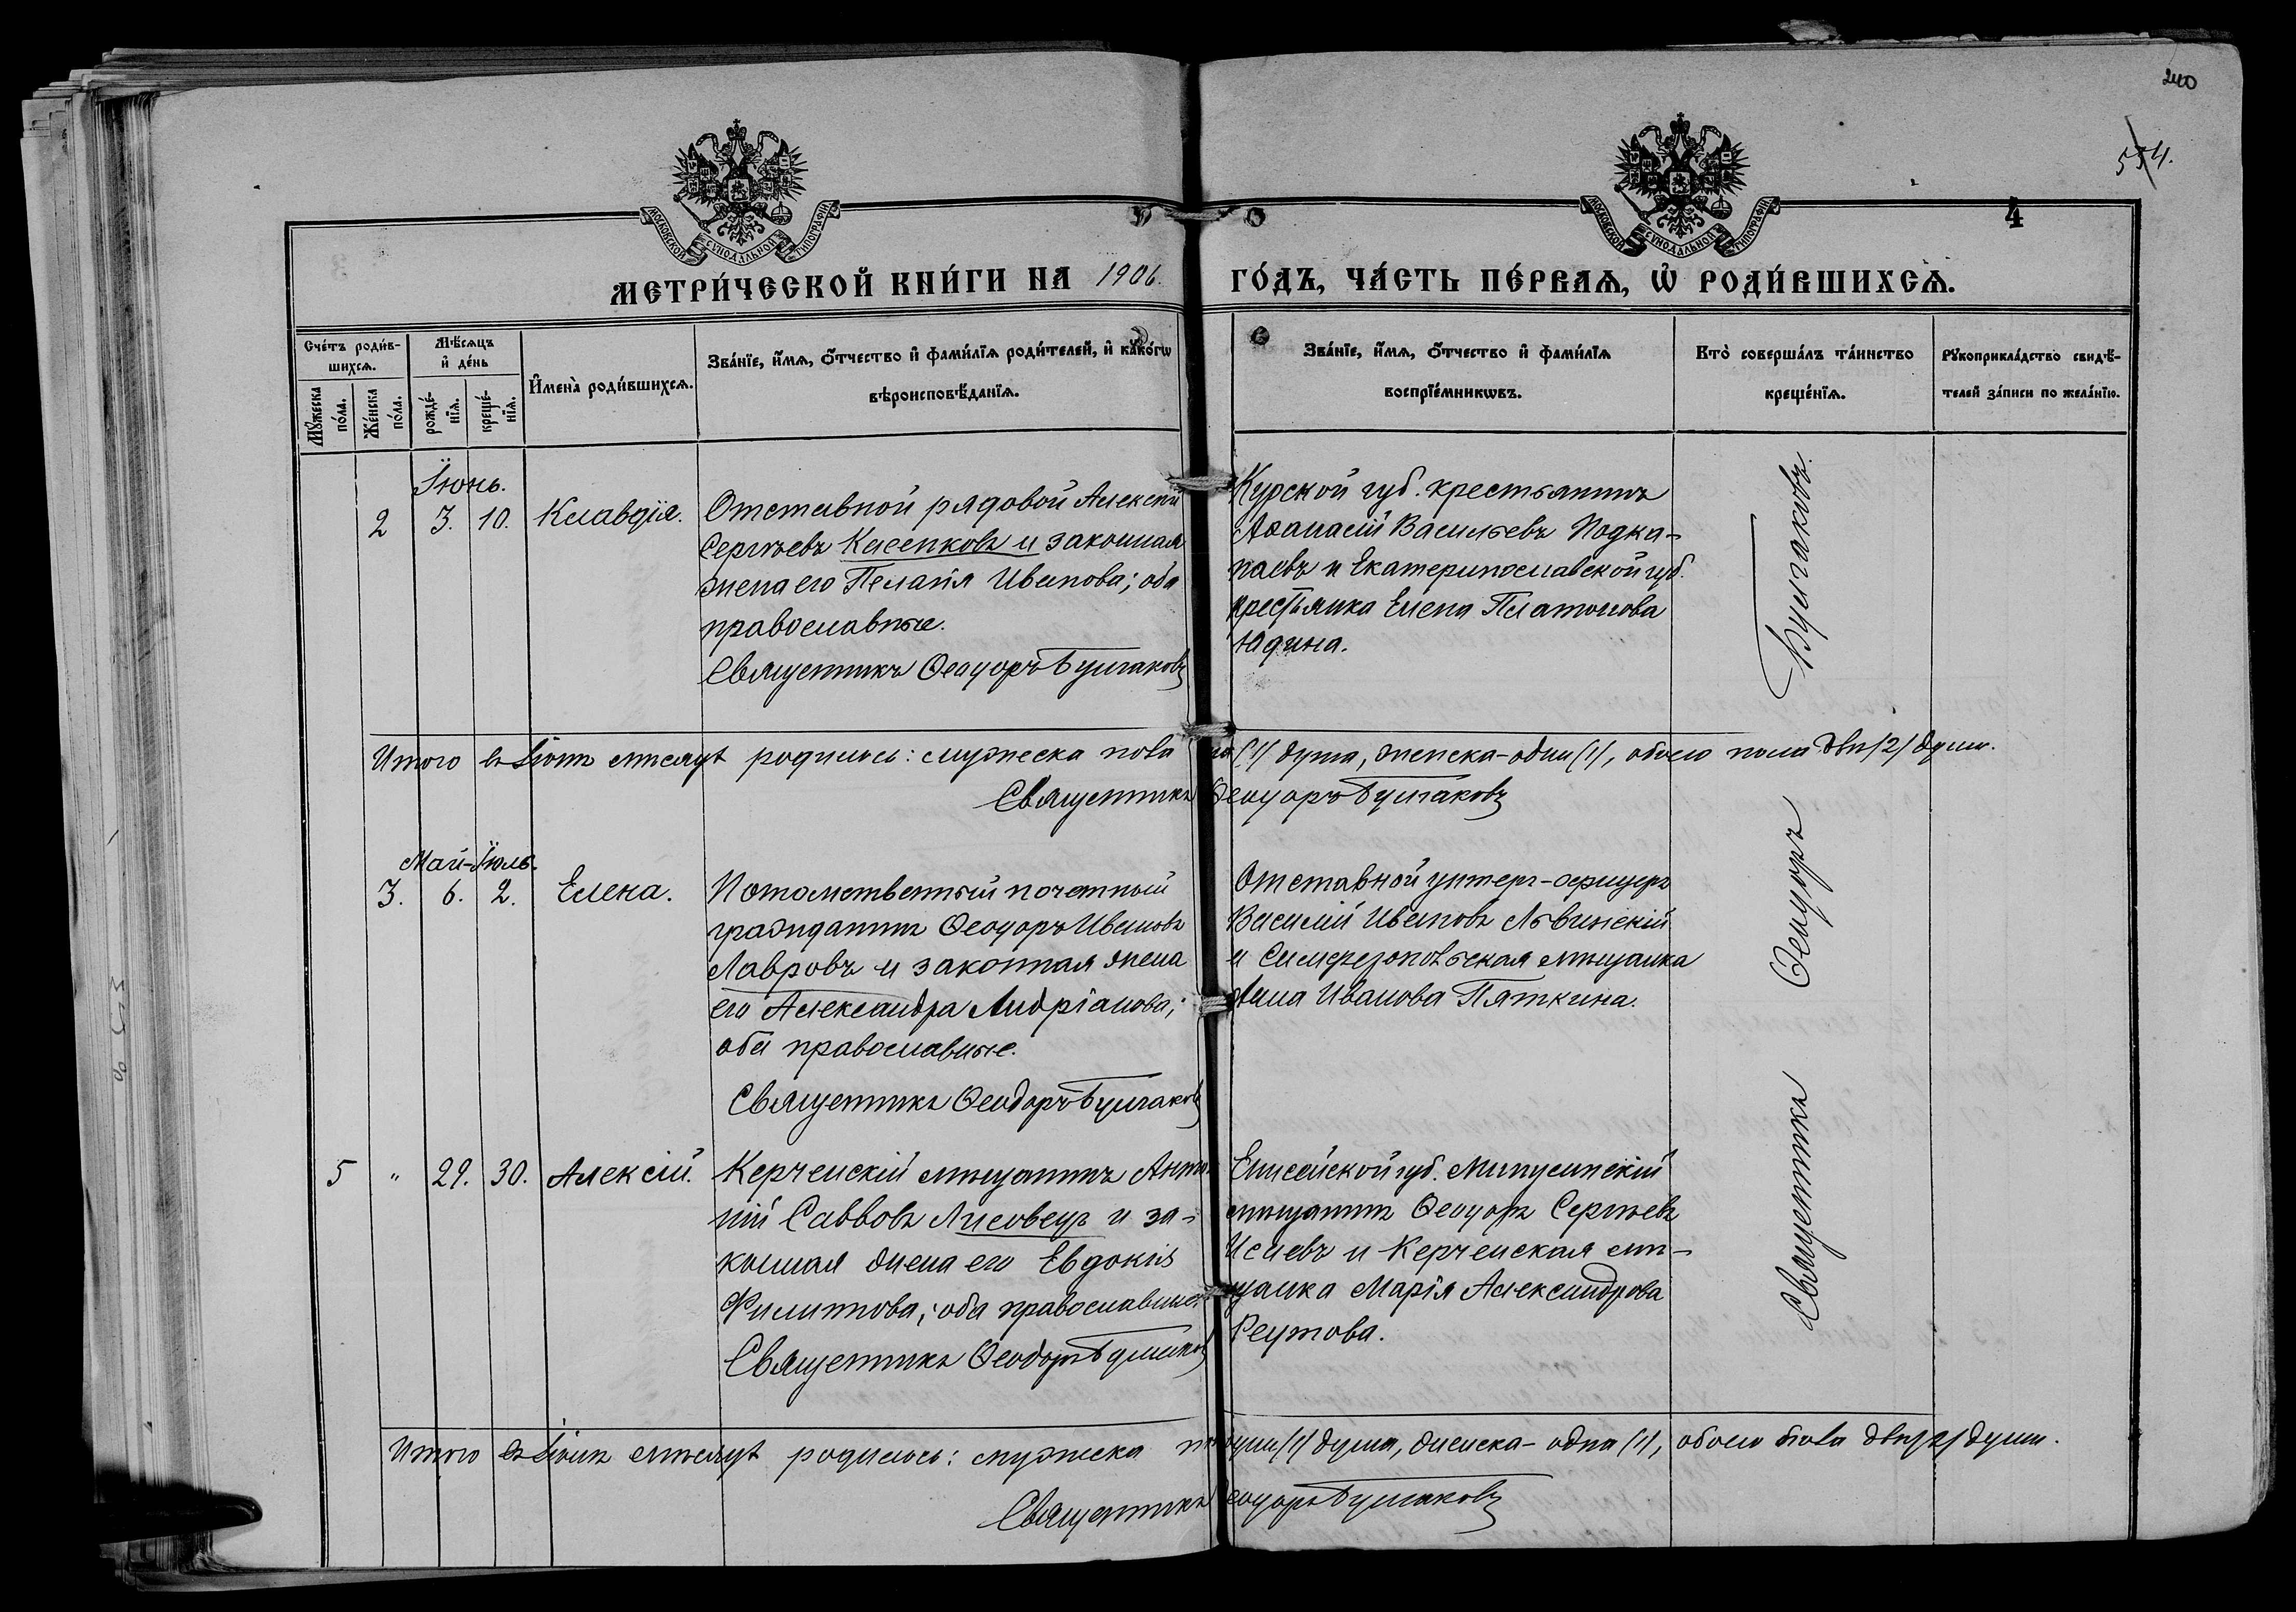 240
554.
4
МОСКОВСКОЙ СѴНОДАЛЬНОЙ ТИПОГРАФІИ
МОСКОВСКОЙ СѴНОДАЛЬНОЙ ТИПОГРАФІИ
МЕТРИ́ЧЕСКОЙ КНИ́ГИ НА 1906. ГО́ДЪ, ЧА́СТЬ ПЕ́РВАѦ, Ѽ РОДИ́ВШИХСѦ.
Сче́тъ роди́в-
шихсѧ.
Мꙋ́жеска
по́ла.
Же́нска
по́ла.
Мѣ́сѧцъ
и҆ де́нь
рожде́-
нїѧ.
креще́-
нїѧ.
И҆мена̀ роди́вшихсѧ.
Зва́нїе, и҆́мѧ, ѻ҆́тчество и҆ фами́лїѧ роди́телей, и҆ како́гѡ
вѣроисповѣ́данїѧ.
Зва́нїе, и҆́мѧ, ѻ҆́тчество и҆ фами́лїѧ
воспрїе́мникѡвъ.
Кто̀ соверша́лъ та́инство
креще́нїѧ.
Рꙋкоприкла́дство свидѣ́-
телей за́писи по жела́нїю.
Іюнь.
2 3. 10. Клавдія.
Отставной рядовой Алексѣй
Сергѣевъ Касенковъ и законная
жена его Пелагія Иванова; оба
православные.
Священникъ Ѳеодоръ Булгаковъ
Курской губ. крестьянинъ
Аѳанасій Васильевъ Подка-
паевъ и Екатеринославской губ.
крестьянка Елена Платонова
Юдина.
Итого въ Іюнѣ мѣсяцѣ родилось: мужеска пола (1) душа, женска-одна (1), обоего пола двѣ (2) души.
Священникъ Ѳеодоръ Булгаковъ
Май-Іюль.
3. 6. 2. Елена.
Потомственный почетный
гражданинъ Ѳеодоръ Ивановъ
Лавровъ и законная жена
его Александра Андріанова;
оба православные.
Священникъ Ѳеодоръ Булгаковъ
Отставной унтеръ-офицеръ
Василій Ивановъ Львинскій
и Симферопольская мѣщанка
Анна Иванова Пяткина.
5 " 29. 30. Алексій.
Керченскій мѣщанинъ Анто-
ній Саввовъ Лисовецъ и за-
конная жена его Евдокія
Филиппова; оба православные
Священникъ Ѳеодоръ Булгаковъ
Енисейской губ. Минусинскій
мѣщанинъ Ѳеодоръ Сергѣевъ
Исаевъ и Керченская мѣ-
щанка Марія Александрова
Реутова.
Итого въ Іюлѣ мѣсяцѣ родилось: мужеска (1) душа, женска-одна (1), обоего пола двѣ (2) души.
Священникъ Ѳеодоръ Булгаковъ
Священникъ Ѳеодоръ Булгаковъ.